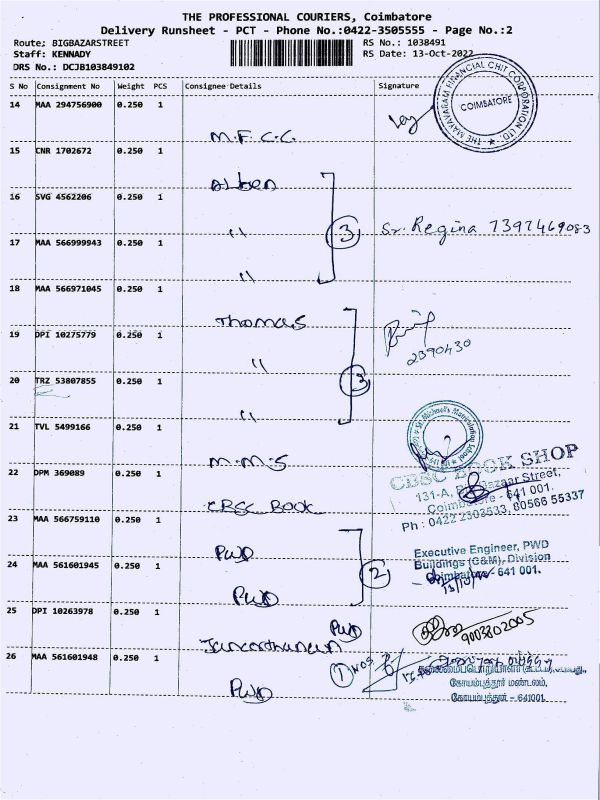 THE PROFESSIONAL COURIERS, Coimbatore
Delivery Runsheet - PCT - Phone No.:0422-3505555 - Page No.:2
Route; BIGBAZARSTREET RS No.: 1038491
Staff: KENNADY RS Date: 13-Oct-2022
DRS No.: DCJB103849102
S No Consignment No Weight PCS Consignee Details Signature
THE MAYAVARAM FINANCIAL CHIT CORPORATION LTD. COIMBATORE
14 MAA 294756900 0.250 1
M.F.C.C.
15 CNR 1702672 0.250 1
16 SVG 4562206 0.250 1
" 3 Sr. Regina 7397469083
17 MAA 566999943 0.250 1
"
18 MAA 566971045 0.250 1
Thomas
19 DPI 10275779 0.250 1
" 2390430
20 TRZ 53807855 0.250 1
3
"
21 TVL 5499166 0.250 1
St. Michael's Matriculation School
M.M.S
22 DPM 369089 0.250 1
CBSC BOOK SHOP
131-A, Bazaar Street,
Coimbatore - 641 001.
Ph : 0422 2303533, 80566 55337
CBSC BOOK
23 MAA 566759110 0.250 1
PWD
Executive Engineer, PWD
Buildings (C&M), Division
Coimbatore - 641 001.
24 MAA 561601945 0.250 1
2
PWD
25 DPI 10263978 0.250 1
PWD 9003802005
26 MAA 561601948 0.250 1
1
PWD
கோயம்புத்தூர் மண்டலம்,
கோயம்புத்தூர் - 641001.